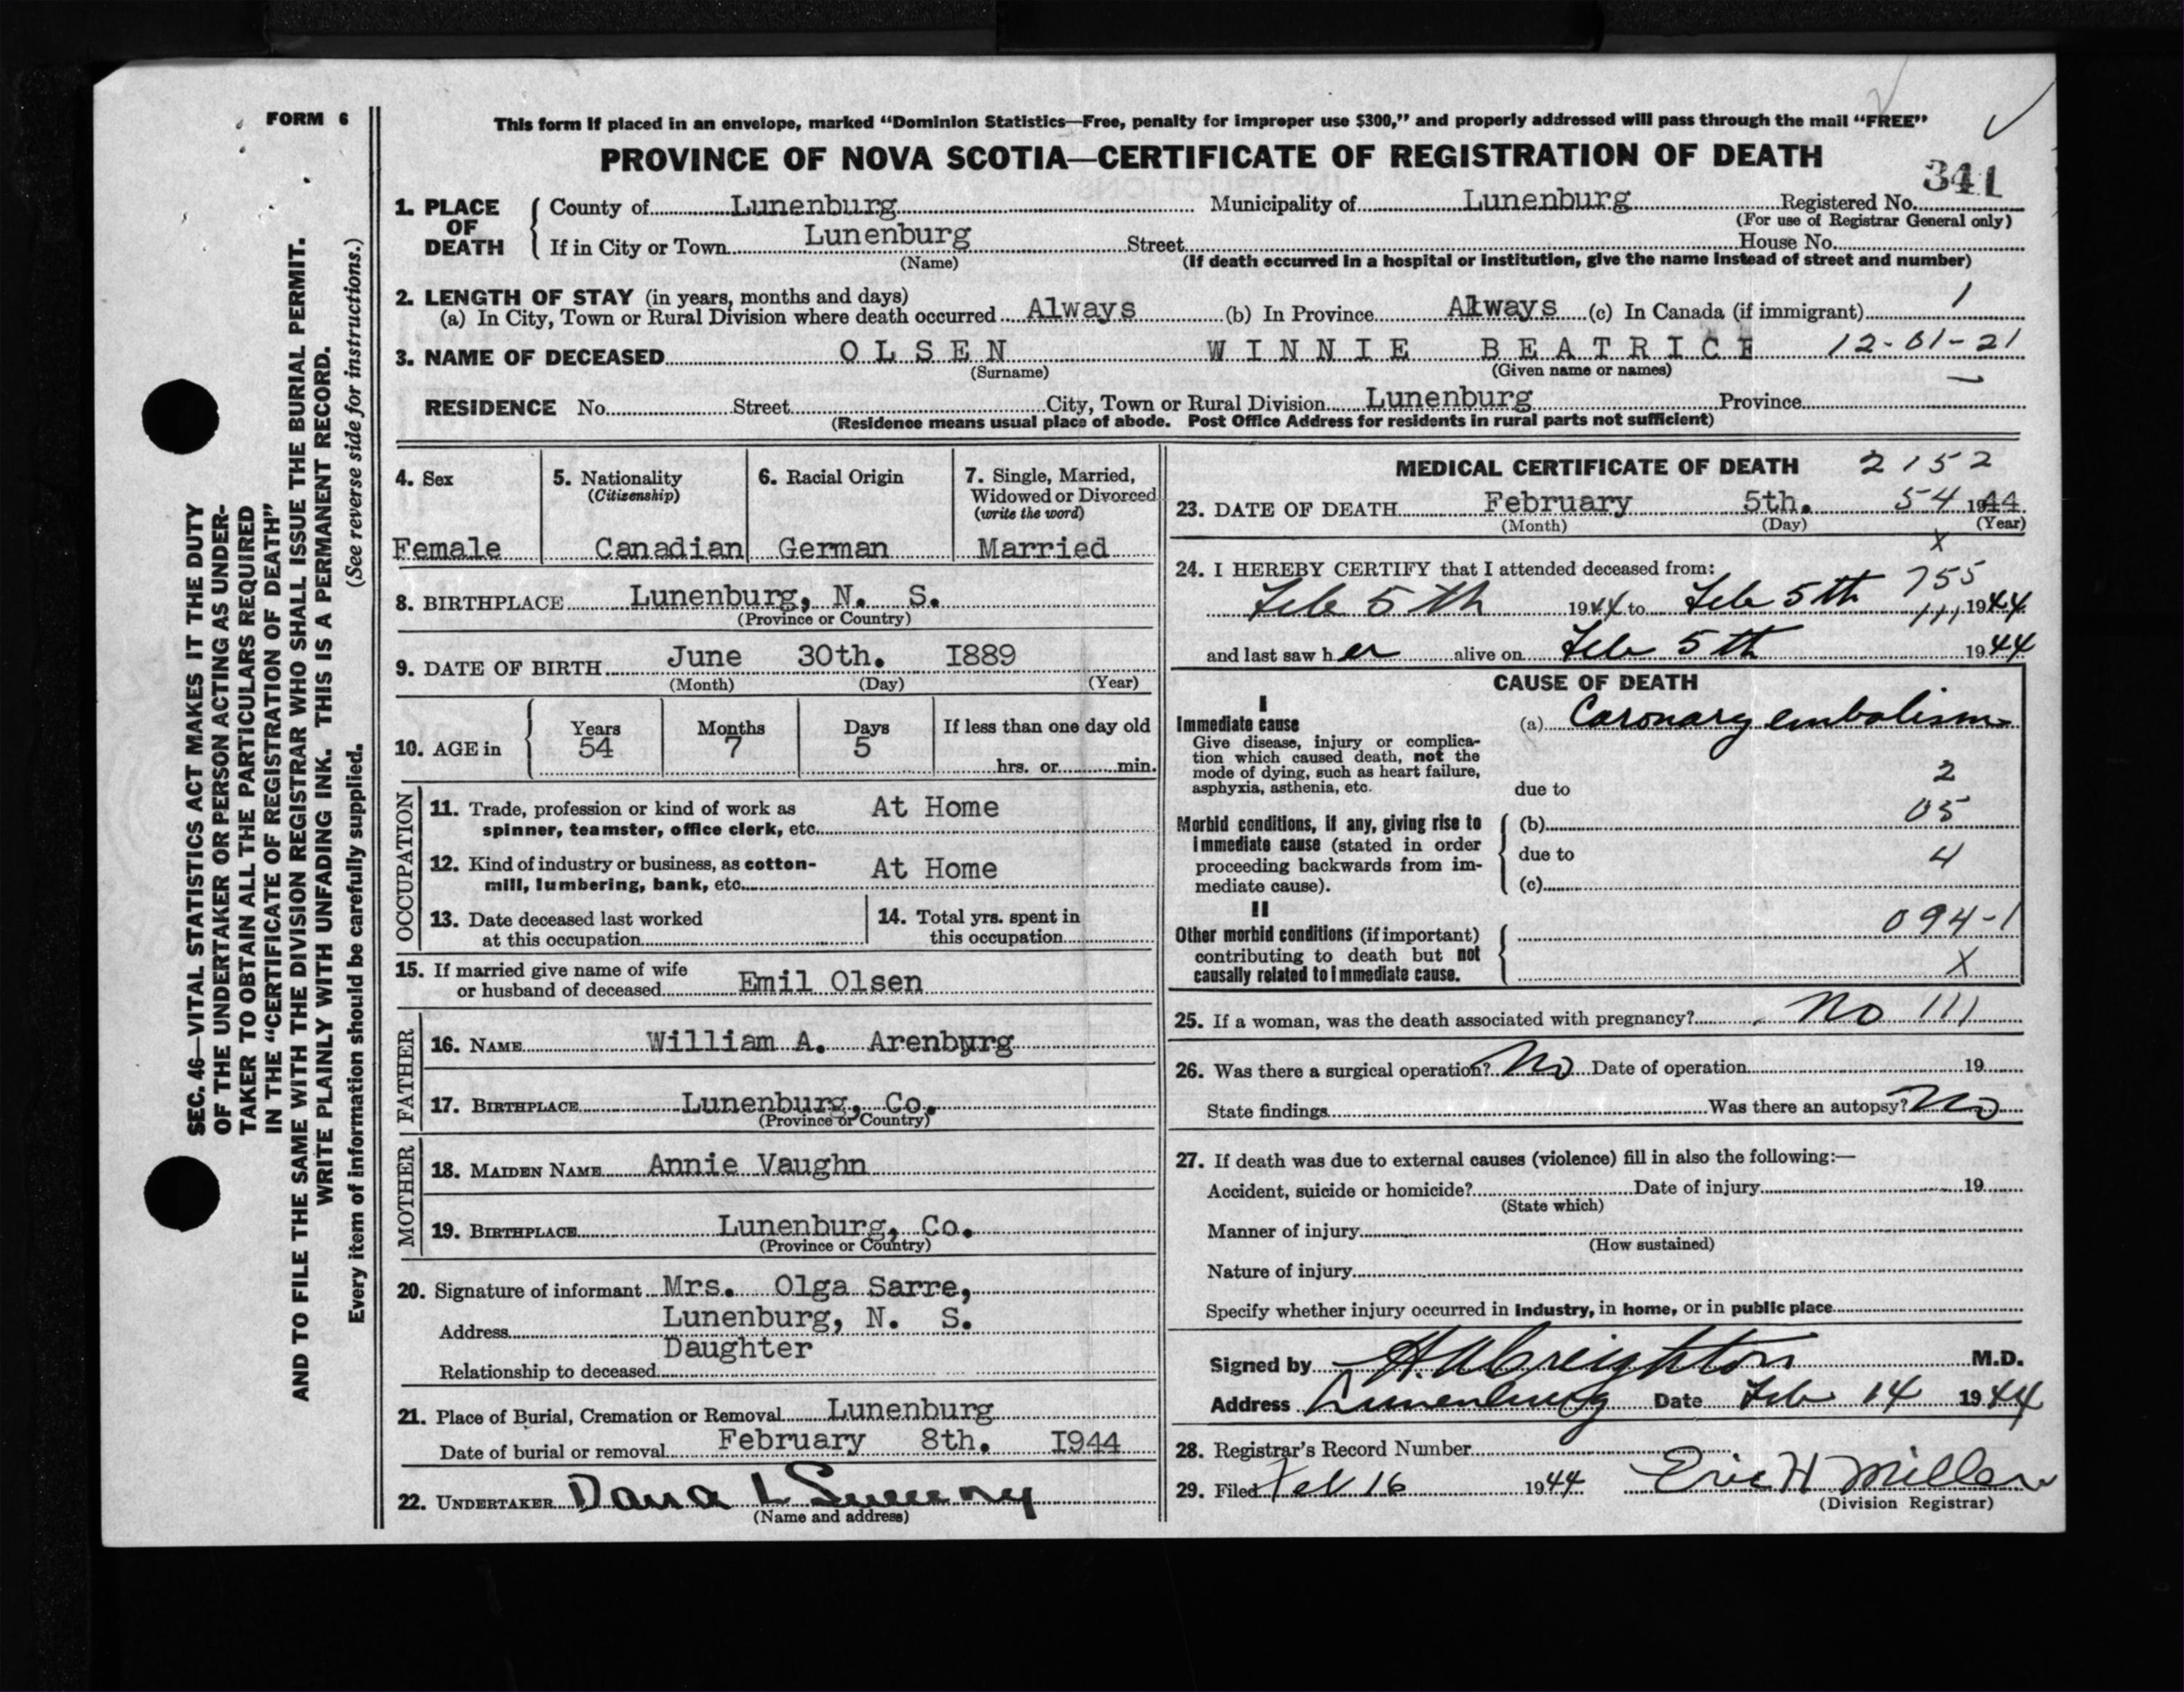 FORM 6
This form if placed in an envelope, marked “Dominion Statistics—Free, penalty for improper use $300,” and properly addressed will pass through the mail “FREE”
PROVINCE OF NOVA SCOTIA—CERTIFICATE OF REGISTRATION OF DEATH
341
1. PLACE OF DEATH
County of Lunenburg Municipality of Lunenburg Registered No.
(For use of Registrar General only)
If in City or Town Lunenburg Street House No.
(Name) (If death occurred in a hospital or institution, give the name instead of street and number)
2. LENGTH OF STAY (in years, months and days)
(a) In City, Town or Rural Division where death occurred Always (b) In Province Always (c) In Canada (if immigrant) 1
3. NAME OF DECEASED OLSEN WINNIE BEATRICE 12-01-21
(Surname) (Given name or names)
RESIDENCE No. Street City, Town or Rural Division Lunenburg Province
(Residence means usual place of abode. Post Office Address for residents in rural parts not sufficient)
4. Sex
Female
5. Nationality
(Citizenship)
Canadian
6. Racial Origin
German
7. Single, Married,
Widowed or Divorced
(write the word)
Married
8. BIRTHPLACE Lunenburg, N. S.
(Province or Country)
9. DATE OF BIRTH June 30th. I889
(Month) (Day) (Year)
10. AGE in
Years Months Days If less than one day old
54 7 5
hrs. or min.
OCCUPATION
11. Trade, profession or kind of work as At Home
spinner, teamster, office clerk, etc.
12. Kind of industry or business, as cotton- At Home
mill, lumbering, bank, etc.
13. Date deceased last worked
at this occupation
14. Total yrs. spent in
this occupation
15. If married give name of wife
or husband of deceased Emil Olsen
FATHER
16. NAME William A. Arenburg
17. BIRTHPLACE Lunenburg, Co.
(Province or Country)
MOTHER
18. MAIDEN NAME Annie Vaughn
19. BIRTHPLACE Lunenburg, Co.
(Province or Country)
20. Signature of informant Mrs. Olga Sarre,
Address Lunenburg, N. S.
Relationship to deceased Daughter
21. Place of Burial, Cremation or Removal Lunenburg
Date of burial or removal February 8th. I944
22. UNDERTAKER Dana L Sweeny
(Name and address)
MEDICAL CERTIFICATE OF DEATH 2152
23. DATE OF DEATH February 5th. 54 1944
(Month) (Day) (Year)
X
24. I HEREBY CERTIFY that I attended deceased from:
755
Feb 5th 1944 to Feb 5th 111, 1944
and last saw her alive on Feb 5th 1944
CAUSE OF DEATH
I
Immediate cause (a) Coronary embolism
Give disease, injury or complica-
tion which caused death, not the
mode of dying, such as heart failure,
asphyxia, asthenia, etc.
2
due to
Morbid conditions, if any, giving rise to
immediate cause (stated in order
proceeding backwards from im-
mediate cause).
05
(b)
due to 4
(c)
II
Other morbid conditions (if important)
contributing to death but not
causally related to immediate cause.
094-1
X
25. If a woman, was the death associated with pregnancy? No 111
26. Was there a surgical operation? No Date of operation 19
State findings Was there an autopsy? No
27. If death was due to external causes (violence) fill in also the following:—
Accident, suicide or homicide? Date of injury 19
(State which)
Manner of injury
(How sustained)
Nature of injury
Specify whether injury occurred in industry, in home, or in public place
Signed by Creighton M.D.
Address Lunenburg Date Feb 14 1944
28. Registrar's Record Number
29. Filed Feb 16 1944 Eric H Miller
(Division Registrar)
SEC. 46—VITAL STATISTICS ACT MAKES IT THE DUTY
OF THE UNDERTAKER OR PERSON ACTING AS UNDER-
TAKER TO OBTAIN ALL THE PARTICULARS REQUIRED
IN THE “CERTIFICATE OF REGISTRATION OF DEATH”
AND TO FILE THE SAME WITH THE DIVISION REGISTRAR WHO SHALL ISSUE THE BURIAL PERMIT.
WRITE PLAINLY WITH UNFADING INK. THIS IS A PERMANENT RECORD.
Every item of information should be carefully supplied. (See reverse side for instructions.)